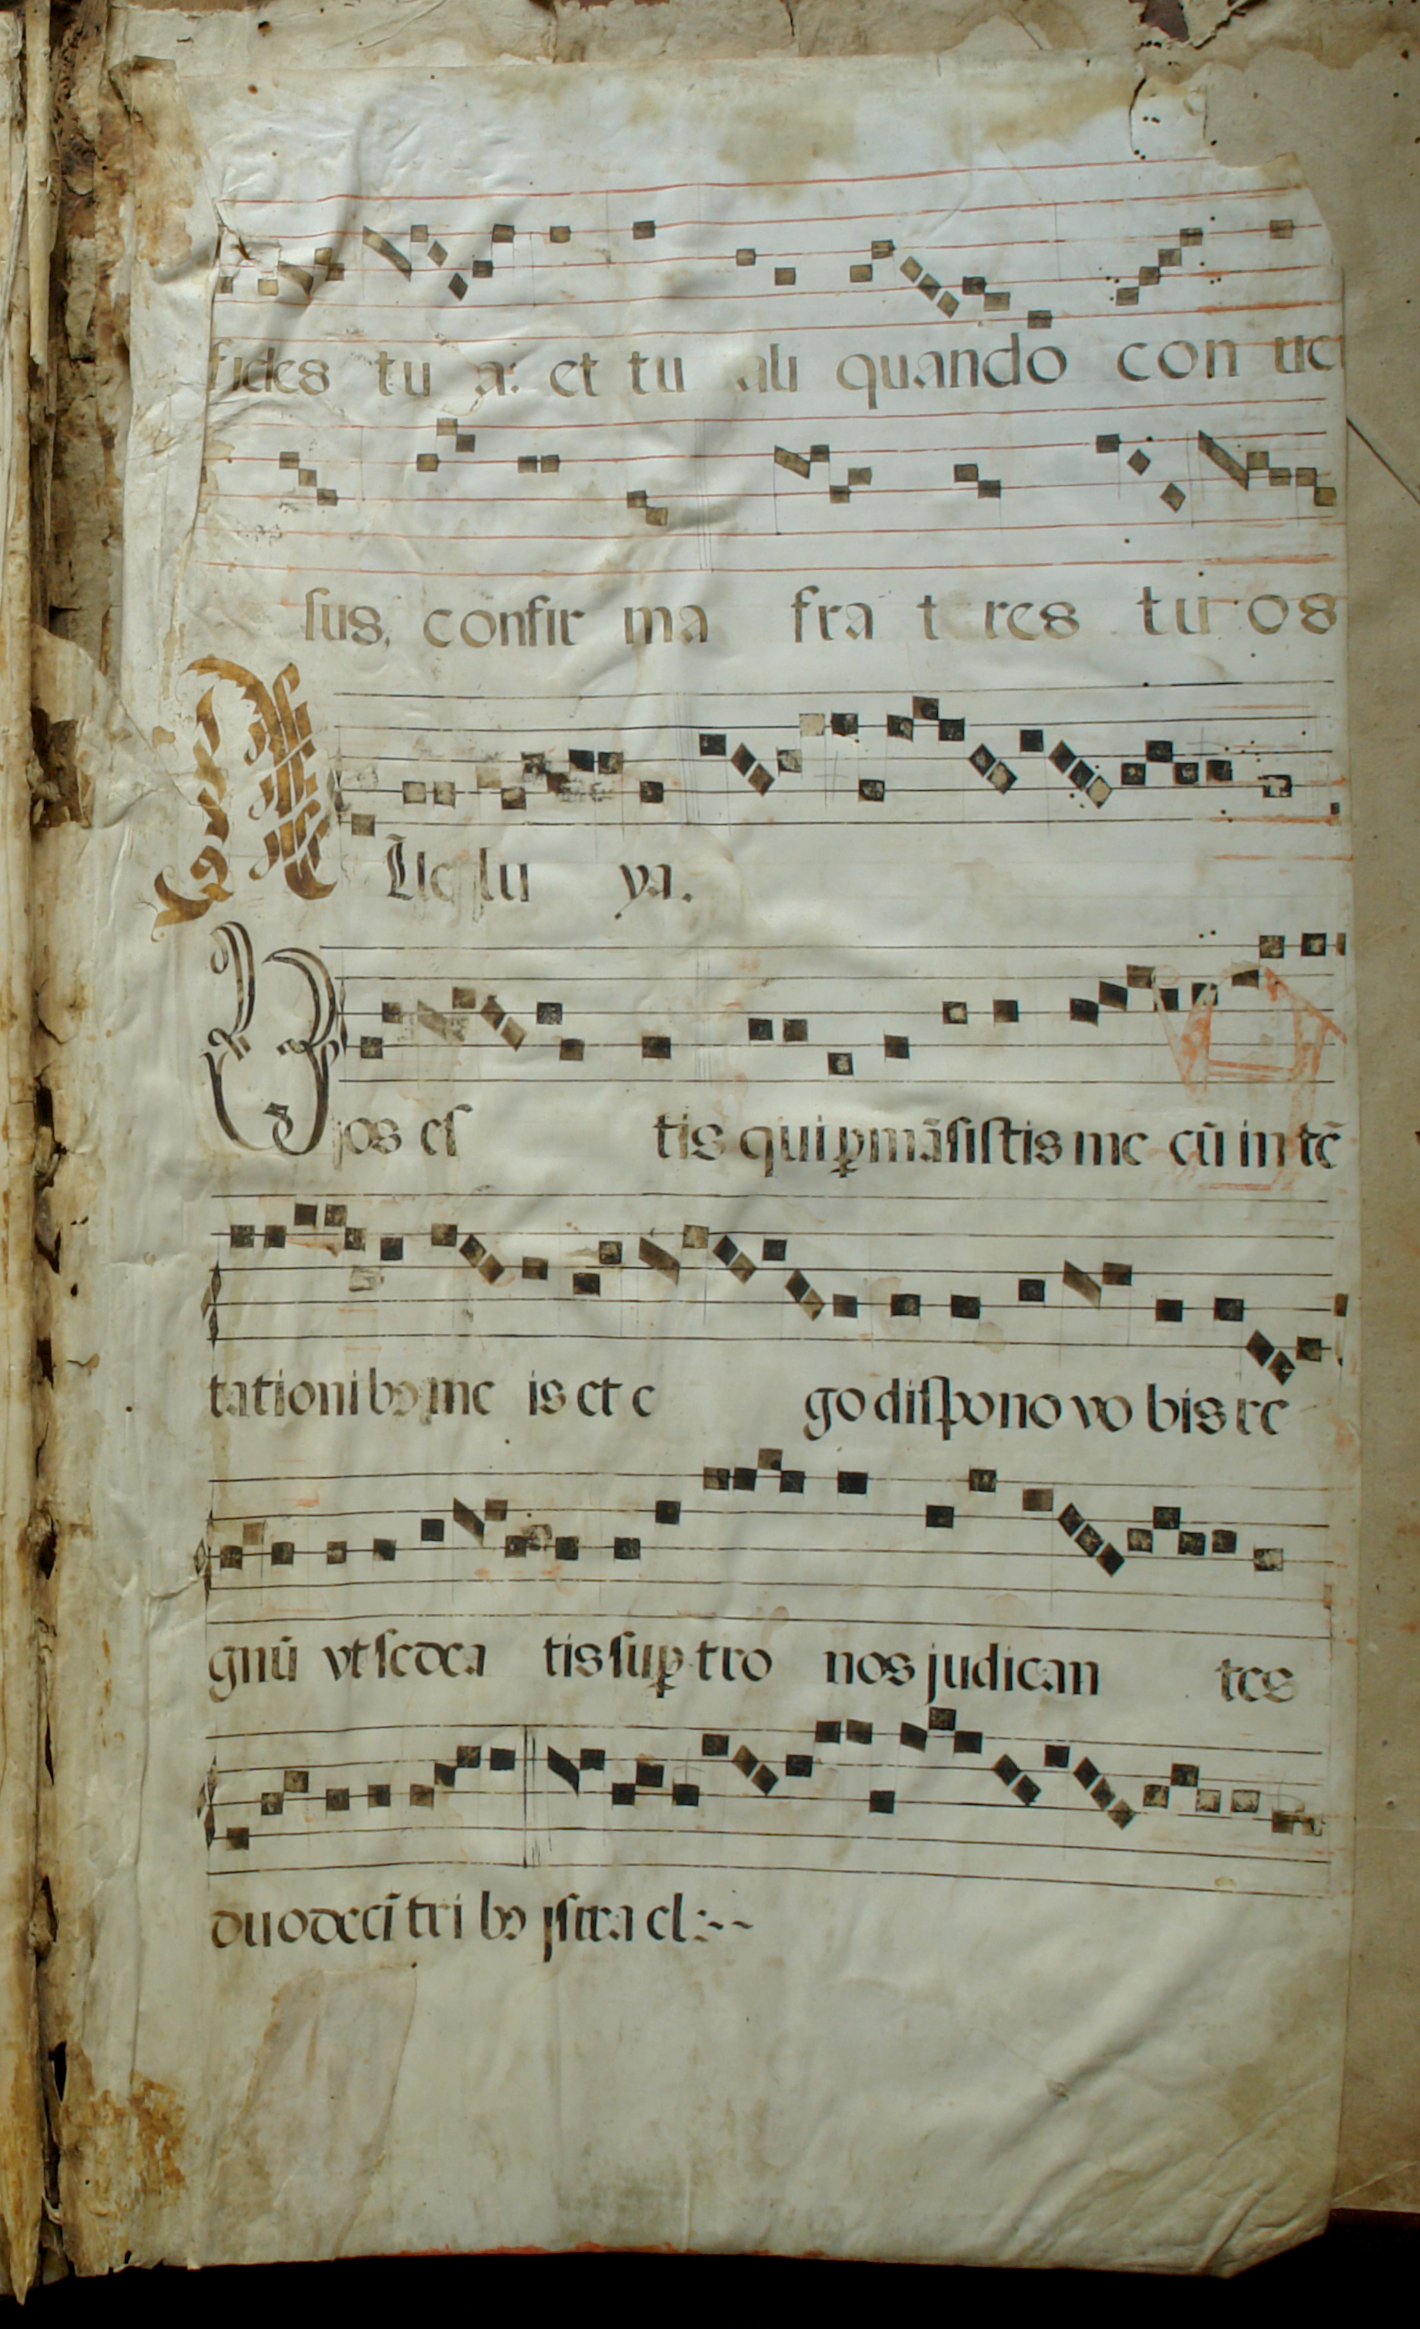 fides tu a: et tu ali quando con uer
ſus, confir ma fra t res tu os
Lle lu ya.
Vos eſ tis qui ꝑmāſiſtis me cū in tē
tationibꝰ me is et e go diſpono vo bis re
gnū vt ſedea tis ſuꝑ tro nos judican tes
duodecī tri bꝰ jſrra el :~~